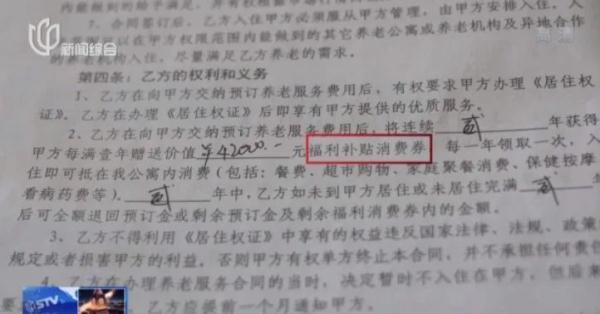 内能做到的给予满足,
7、合同签订后,乙方入住甲方必须服从甲方管理,由甲方安排入住,入
可以在甲方权限范围内能做到的其它养老公寓或养老机构及异地合作
养老机构入住,尽量满足乙方养老的需求。
第四条:乙方的权利和义务
1、乙方在向甲方交纳预订养老服务费用后,有权要求甲方办理《居住权
证》。乙方在办理《居住权证》后即享有甲方提供的优质服务。
2、乙方在向甲方交纳预订养老服务费用后,将连续 贰 年获得
甲方每满壹年赠送价值 ¥42000.- 元福利补贴消费券 每一年领取一次,入
住即可抵在我公寓内消费(包括:餐费、超市购物、家庭聚餐消费、保健按摩
看病药费等)。贰 年中,乙方如未到甲方居住或未居住完满 贰
后可全额退回预订金或剩余预订金及剩余福利消费券内的金额。
3、乙方不得利用《居住权证》中享有的权益违反国家法律、法规、政策
规定或者损害甲方的利益。否则甲方有权单方终止本合同,并不承担任何责任
4、乙方在办理养老服务合同的当时,决定暂时不入住在甲方,但后来
要 乙方应提前一个月通知甲方。
新闻综合
高清
STV